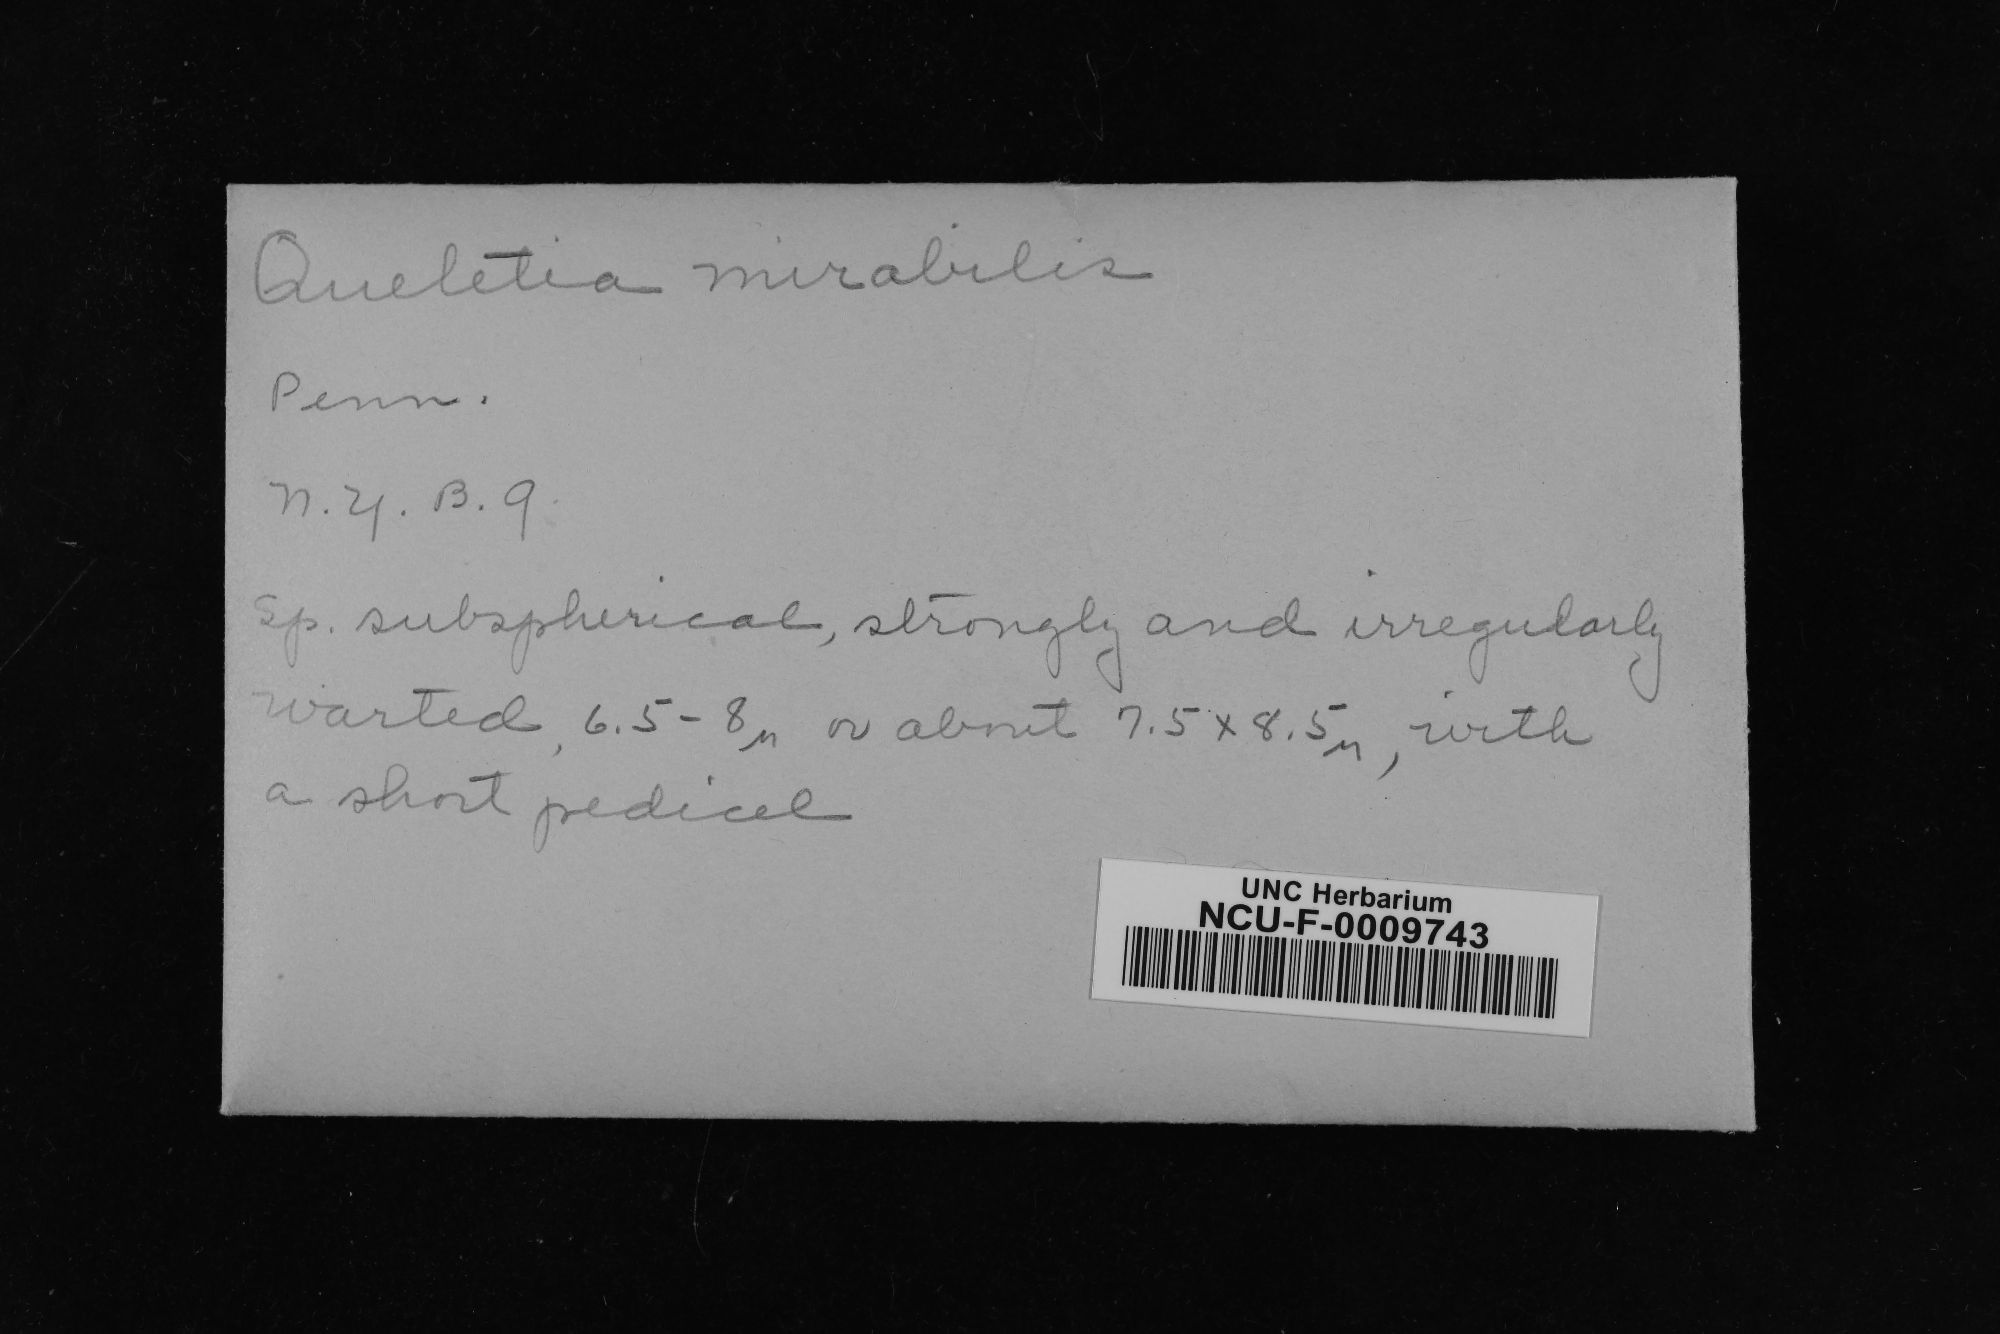 Queletia mirabilis
Penn.
N.Y. B.G.
Sp. subspherical, strongly and irregularly
warted, 6.5-8µ or about 7.5x8.5µ, with
a short pedicel
UNC Herbarium
NCU-F-0009743